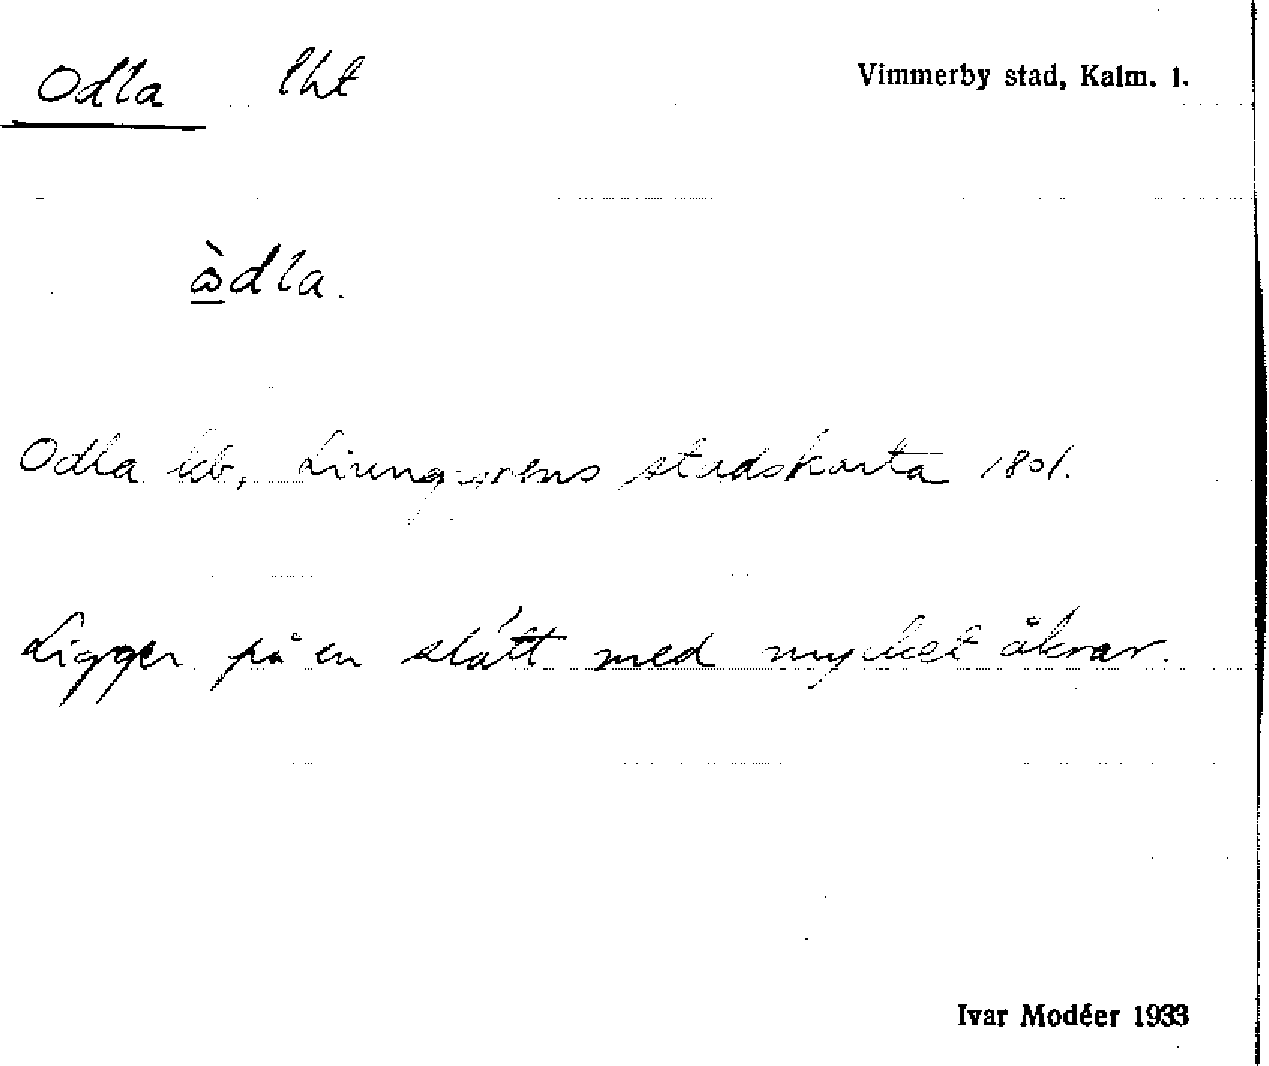 Odla lht
Vimmerby stad, Kalm. l.
ὼdla.
Odla lht, Ljunggrens stadskarta 1801.
Ligger på en slätt med mycket åkrar.
Ivar Modéer 1933